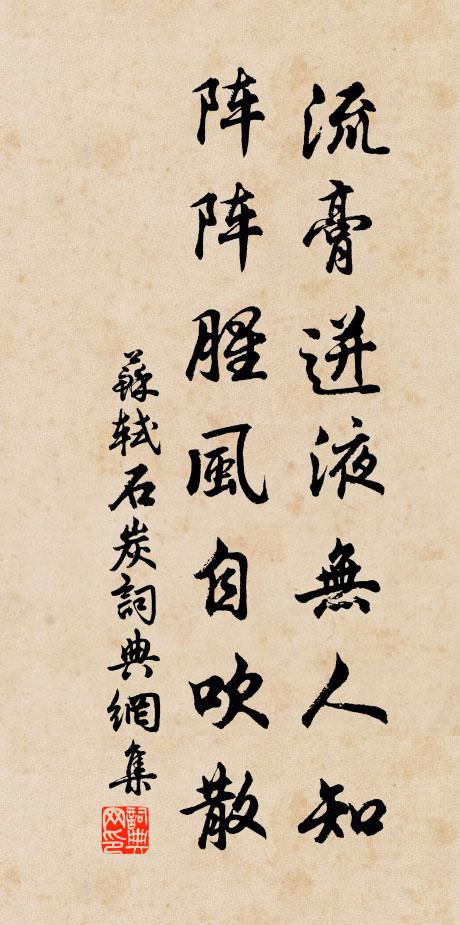 流膏迸液無人知
阵阵腥風自吹散
蘇轼石炭詞典網集
詞典网印